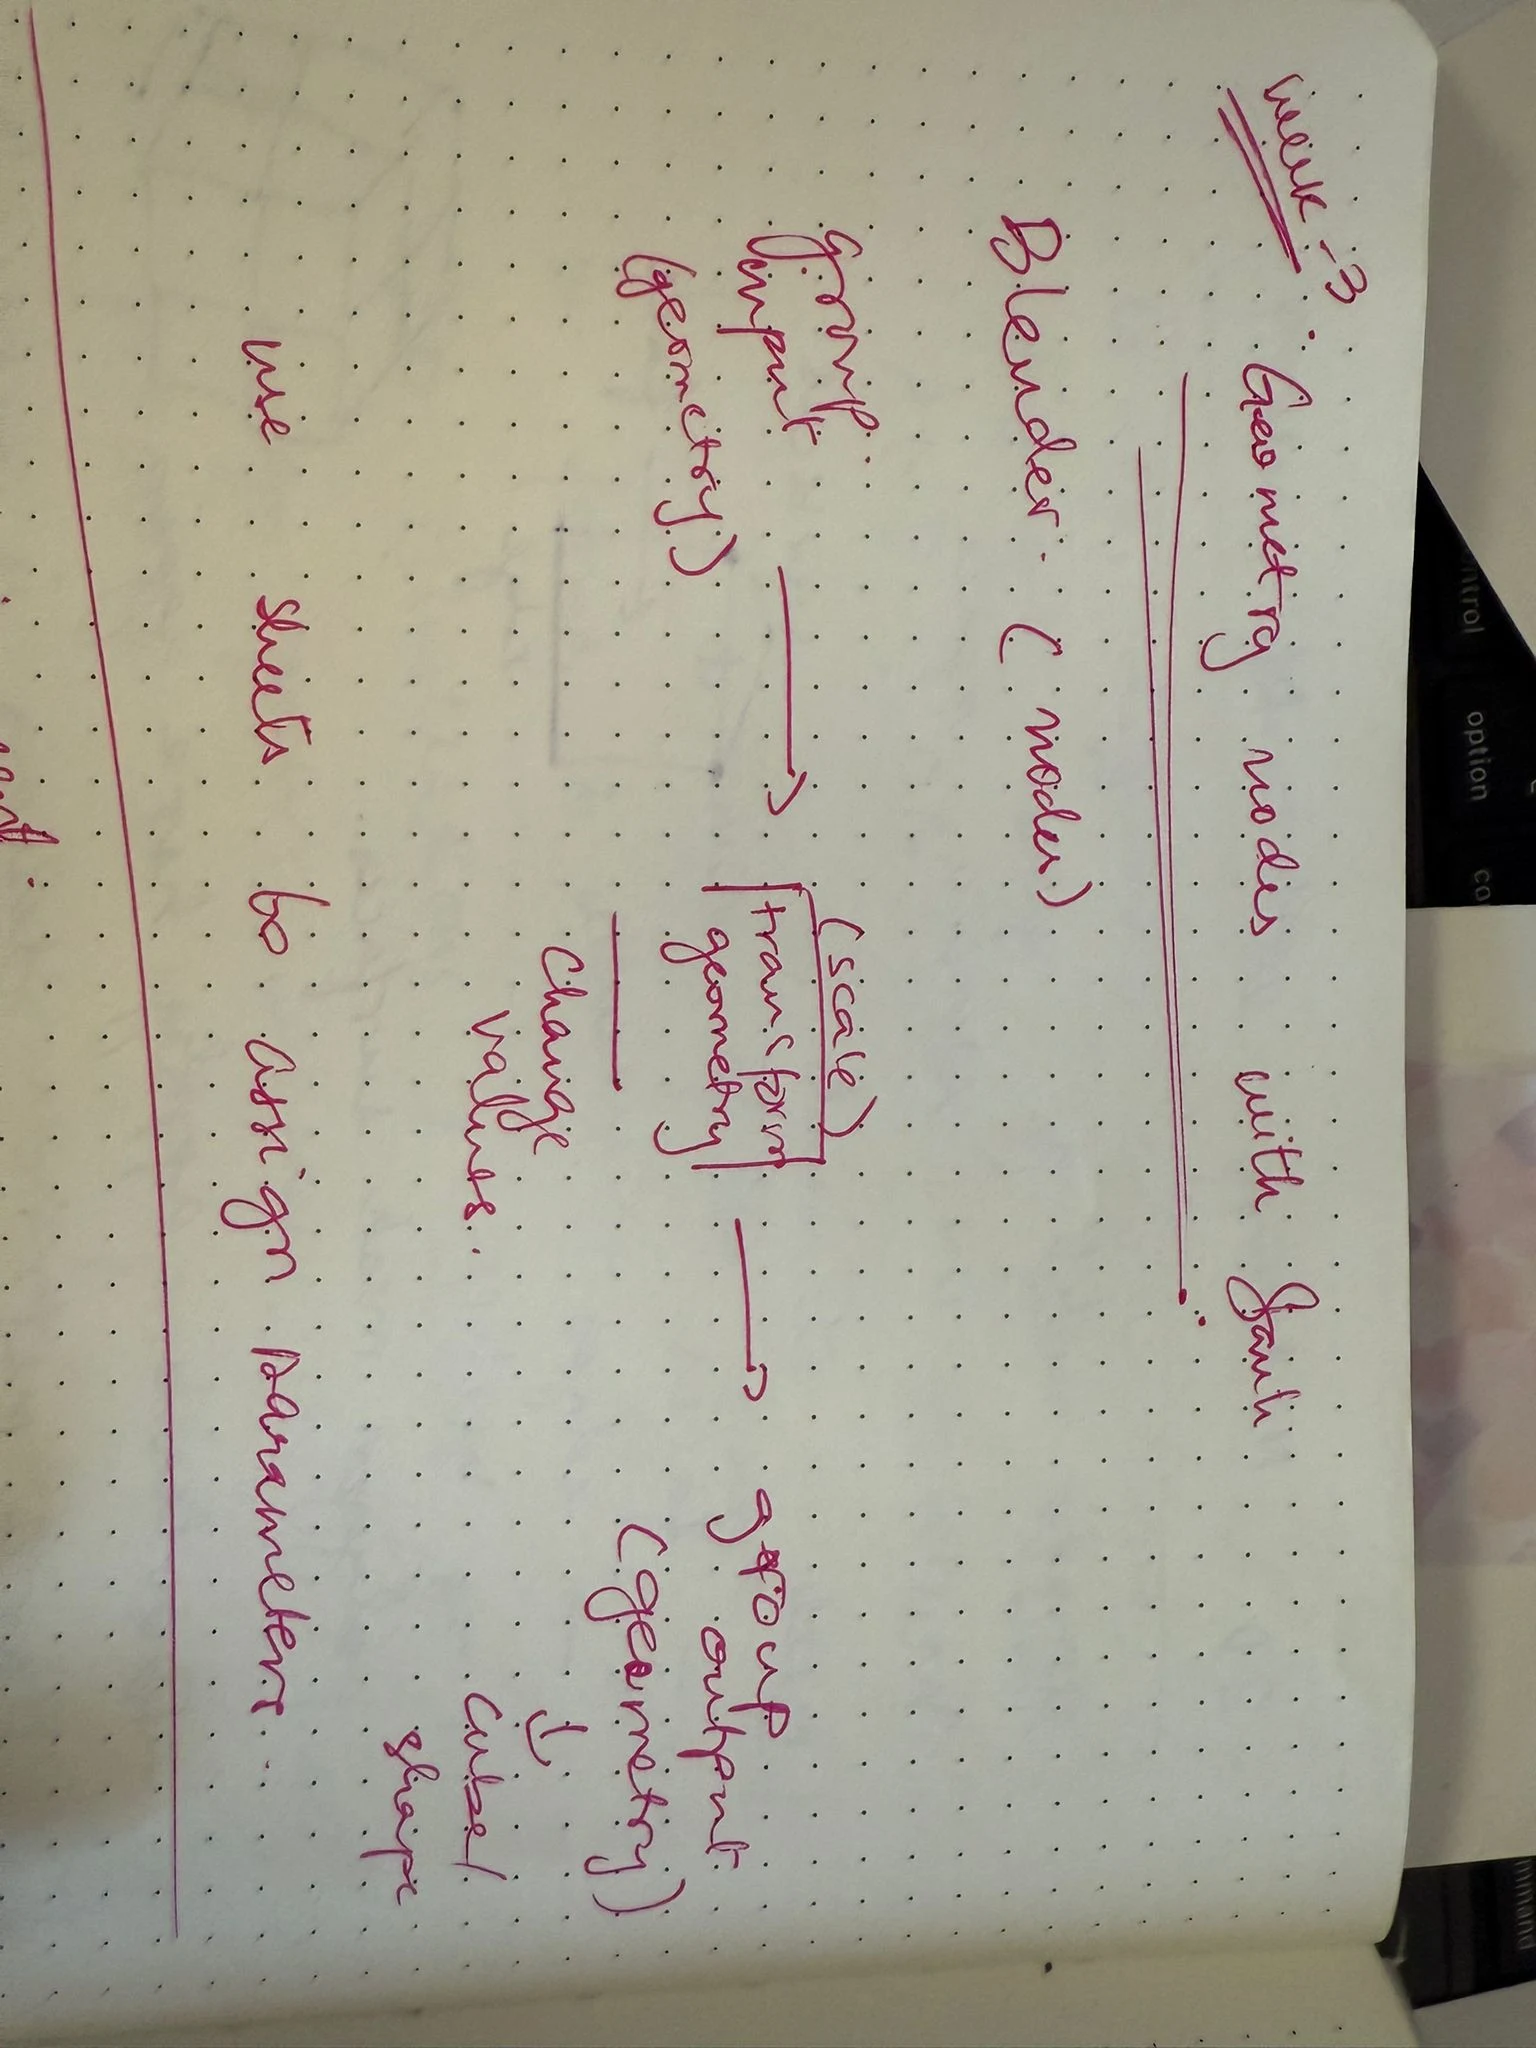 Week-3
Geometry nodes with
Blender. (nodes)
group
input
(geometry)
(scale)
transform
geometry
change
values..
group
output
(geometry)
cube/
shape
use sheets to assign parameters..
option